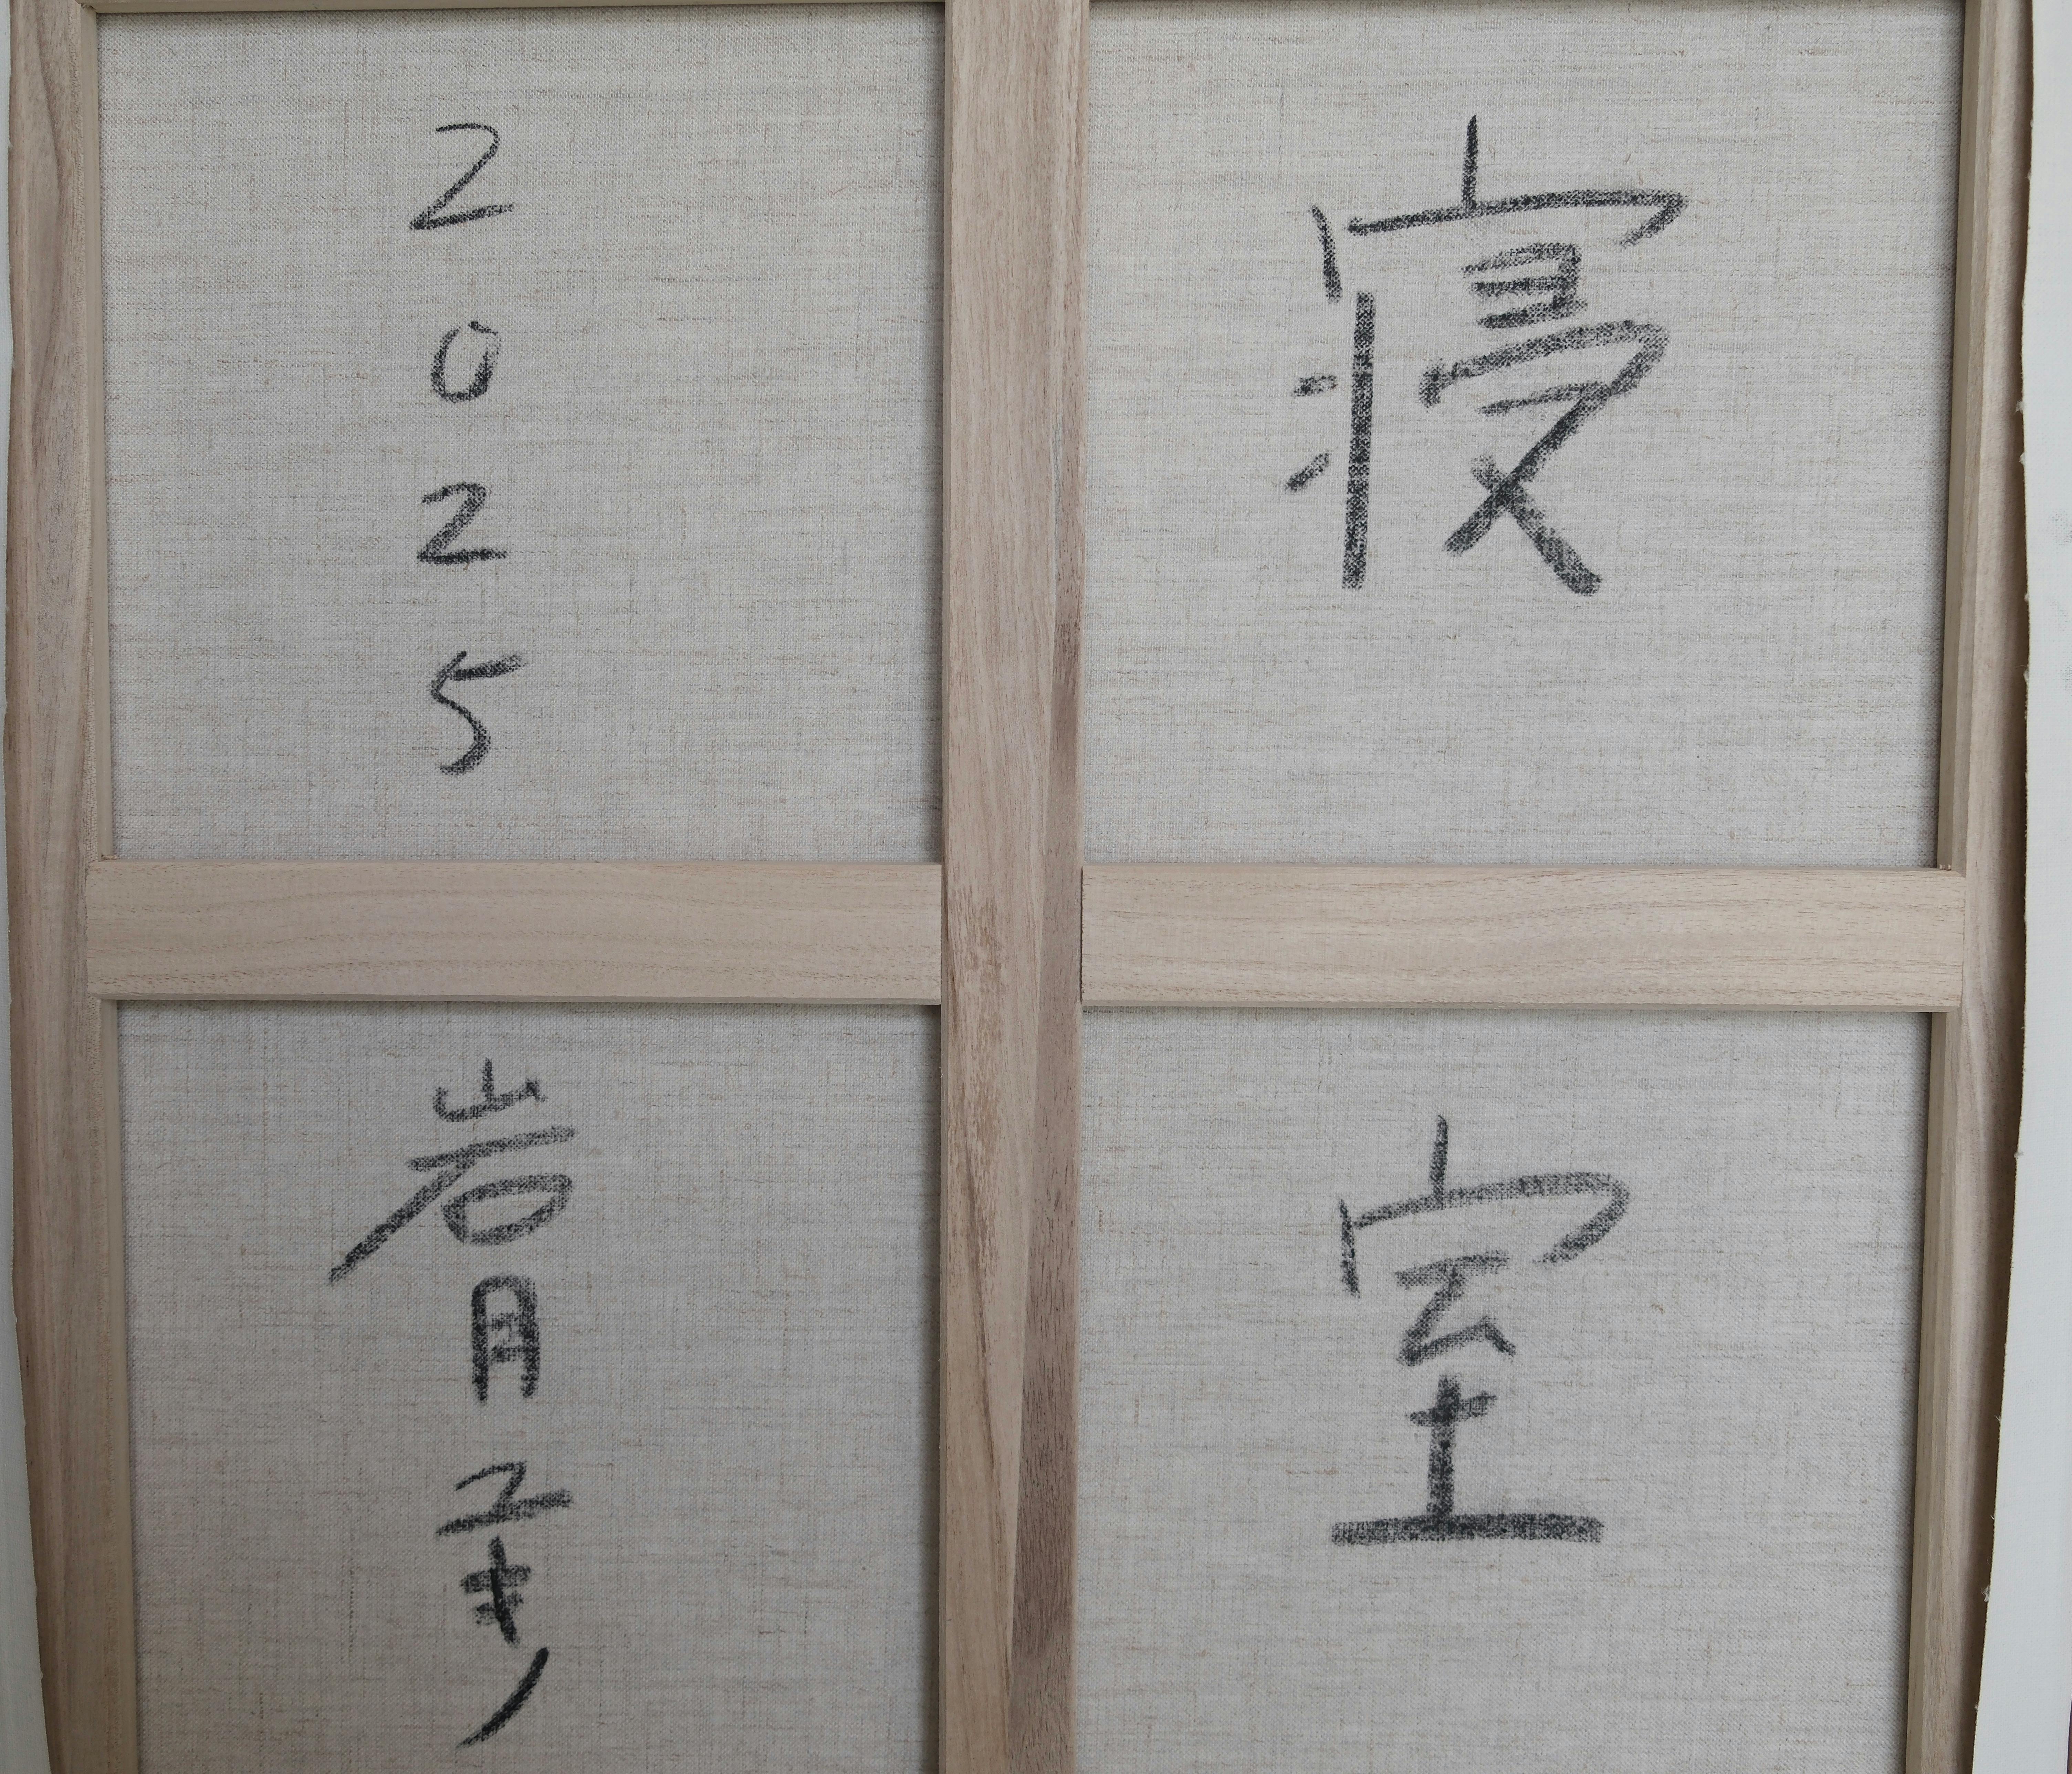 寝室
2025
岩月ユキノ